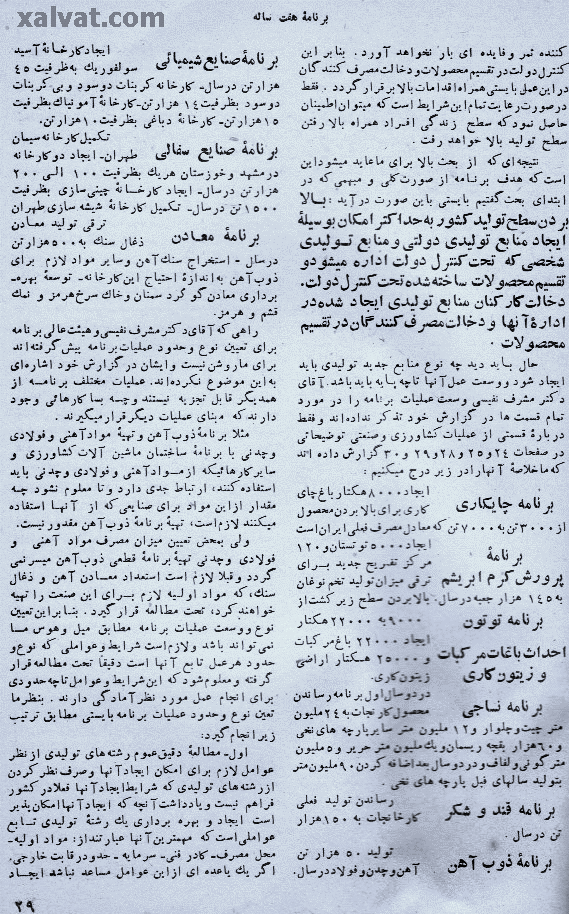 xalvat.com
برنامهٔ هفت ساله
کننده ثمر و فایده ای بار نخواهد آورد. بنابر این
کنترل دولت در تقسیم محصولات و دخالت مصرف کنندگان
در این عمل بایستی همراه اقدامات بالا برقرار گردد. فقط
در صورت رعایت تمام این شرایط است که میتوان اطمینان
حاصل نمود که سطح زندگی افراد همراه بالا رفتن
سطح تولید بالا خواهد رفت.
نتیجه‌ای که از بحث بالا برای ما عاید میشود این
است که هدف برنامه از صورت کلی و مبهمی که در
ابتدای بحث گفتیم بایستی باین صورت درآید: بالا
بردن سطح تولید کشور به حداکثر امکان بوسیلهٔ
ایجاد منابع تولیدی دولتی و منابع تولیدی
شخصی که تحت کنترل دولت اداره میشود و
تقسیم محصولات ساخته شده تحت کنترل دولت.
دخالت کارکنان منابع تولیدی ایجاد شده در
ادارهٔ آنها و دخالت مصرف کنندگان در تقسیم
محصولات.
حال باید دید چه نوع منابع جدید تولیدی باید
ایجاد شود و وسعت عمل آنها تا چه پایه باید باشد. آقای
دکتر مشرف نفیسی وسعت عملیات برنامه را در مورد
تمام قسمت ها در گزارش خود تذکر نداده اند و فقط
دربارهٔ قسمتی از عملیات کشاورزی و صنعتی توضیحاتی
در صفحات ۲۴ و ۲۵ و ۲۸ و ۲۹ و ۳۰ گزارش داده اند
که ما خلاصهٔ آنها را در زیر درج میکنیم:
برنامه چایکاری
ایجاد ۸۰۰۰ هکتار باغ چای
کاری برای بالا بردن محصول
از ۳۰۰۰ تن به ۷۰۰۰ تن که معادل مصرف فعلی ایران است
برنامهٔ
پرورش کرم ابریشم
ایجاد ۵۰۰۰ توتستان و ۱۲۰
مرکز تفریخ جدید برای
ترقی میزان تولید تخم نوغان
به ۱۴۵ هزار جعبه در سال.
برنامه توتون
بالا بردن سطح زیر کشت از
۹۰۰۰ به ۲۲۰۰۰ هکتار
احداث باغات مرکبات
و زیتون کاری
ایجاد ۲۲۰۰۰ باغ مرکبات
و ۲۵۰۰۰ هکتار اراضی
زیتون کاری.
برنامه نساجی
در دو سال اول برنامه رساندن
محصول کارنجات به ۲۴ ملیون
متر چیت و چلوار و ۱۲ ملیون متر سایر پارچه های نخی
و ۶۰ هزار بقچه ریسمان و یک ملیون متر حریر و ۵ ملیون
متر گونی و لفاف و در دو سال بعد اضافه کردن ۹۰ ملیون متر
بتولید سالهای قبل پارچه های نخی.
برنامه قند و شکر
رساندن تولید فعلی
کارخانجات به ۱۵۰ هزار
تن در سال.
برنامهٔ ذوب آهن
تولید ۵۰ هزار تن
آهن و چدن و فولاد در سال.
برنامهٔ صنایع شیمیائی
ایجاد کارخانهٔ آسید
سولفوریک به ظرفیت ۴۵
هزار تن در سال- کارخانه کربنات دوسود و بی کربنات
دوسود بظرفیت ۱۴ هزار تن- کارخانهٔ آمونیاک بظرفیت
۱۵ هزار تن- کارخانهٔ دباغی بظرفیت ۱۰ هزار تن.
برنامهٔ صنایع سفالی
تکمیل کارخانه سیمان
طهران- ایجاد دو کارخانه
در مشهد و خوزستان هریک بظرفیت ۱۰۰ الی ۲۰۰
هزار تن در سال- ایجاد کارخانهٔ چینی سازی بظرفیت
۱۵۰۰ تن در سال- تکمیل کارخانهٔ شیشه سازی طهران
برنامهٔ معادن
ترقی تولید معادن
ذغال سنگ به ۵۰۰ هزار تن
در سال- استخراج سنگ آهن و سایر مواد لازم برای
ذوب آهن به اندازهٔ احتیاج این کارخانه- توسعهٔ بهره-
برداری معادن گوگرد سمنان و خاک سرخ هرمز و نمک
قشم و هرمز.
راهی که آقای دکتر مشرف نفیسی و هیئت عالی برنامه
برای تعیین نوع و حدود عملیات برنامه پیش گرفته اند
برای ما روشن نیست و ایشان در گزارش خود اشاره‌ای
به این موضوع نکرده اند. عملیات مختلف برنامه از
همدیگر قابل تجزیه نیستند و چه بسا کارهائی وجود
دارند که مبنای عملیات دیگر قرار میگیرند.
مثلا برنامهٔ ذوب آهن و تهیهٔ مواد آهنی و فولادی
و چدنی با برنامهٔ ساختمان ماشین آلات کشاورزی و
سایر کارهائیکه از مواد آهنی و فولادی و چدنی باید
استفاده کنند، ارتباط جدی دارد و تا معلوم نشود چه
مقدار از این مواد برای صنایعی که از آنها استفاده
میکنند لازم است، تهیهٔ برنامهٔ ذوب آهن مقدور نیست.
ولی بمحض تعیین میزان مصرف مواد آهنی و
فولادی و چدنی تهیهٔ برنامهٔ قطعی ذوب آهن میسر نمی
گردد و قبلا لازم است استعداد معادن آهن و ذغال
سنگ، که مواد اولیه لازم برای این صنعت را تهیه
خواهند کرد، تحت مطالعه قرار گیرد. بنابر این تعیین
نوع و وسعت عملیات برنامه مطابق میل و هوس ما
نمی تواند باشد و لازم است شرایط و عواملی که نوع و
حدود هر عمل تابع آنها است دقیقاً تحت مطالعه قرار
گرفته و معلوم شود که این شرایط و عوامل تا چه حدودی
برای انجام عمل مورد نظر آمادگی دارند. بنظر ما
تعین نوع و حدود عملیات برنامه بایستی مطابق ترتیب
زیر انجام گیرد:
اول- مطالعهٔ دقیق عموم رشته های تولیدی از نظر
عوامل لازم برای امکان ایجاد آنها و صرف نظر کردن
از رشته های تولیدی که شرایط ایجاد آنها فعلا در کشور
فراهم نیست و یادداشت آنچه که ایجاد آنها امکان پذیر
است ایجاد و بهره برداری یک رشتهٔ تولیدی تابع
عواملی است که مهمترین آنها عبارتند از: مواد اولیه-
محل مصرف- کادر فنی- سرمایه- حدود رقابت خارجی.
اگر یک یا عده ای از این عوامل مساعد نباشد ایجاد
۲۹